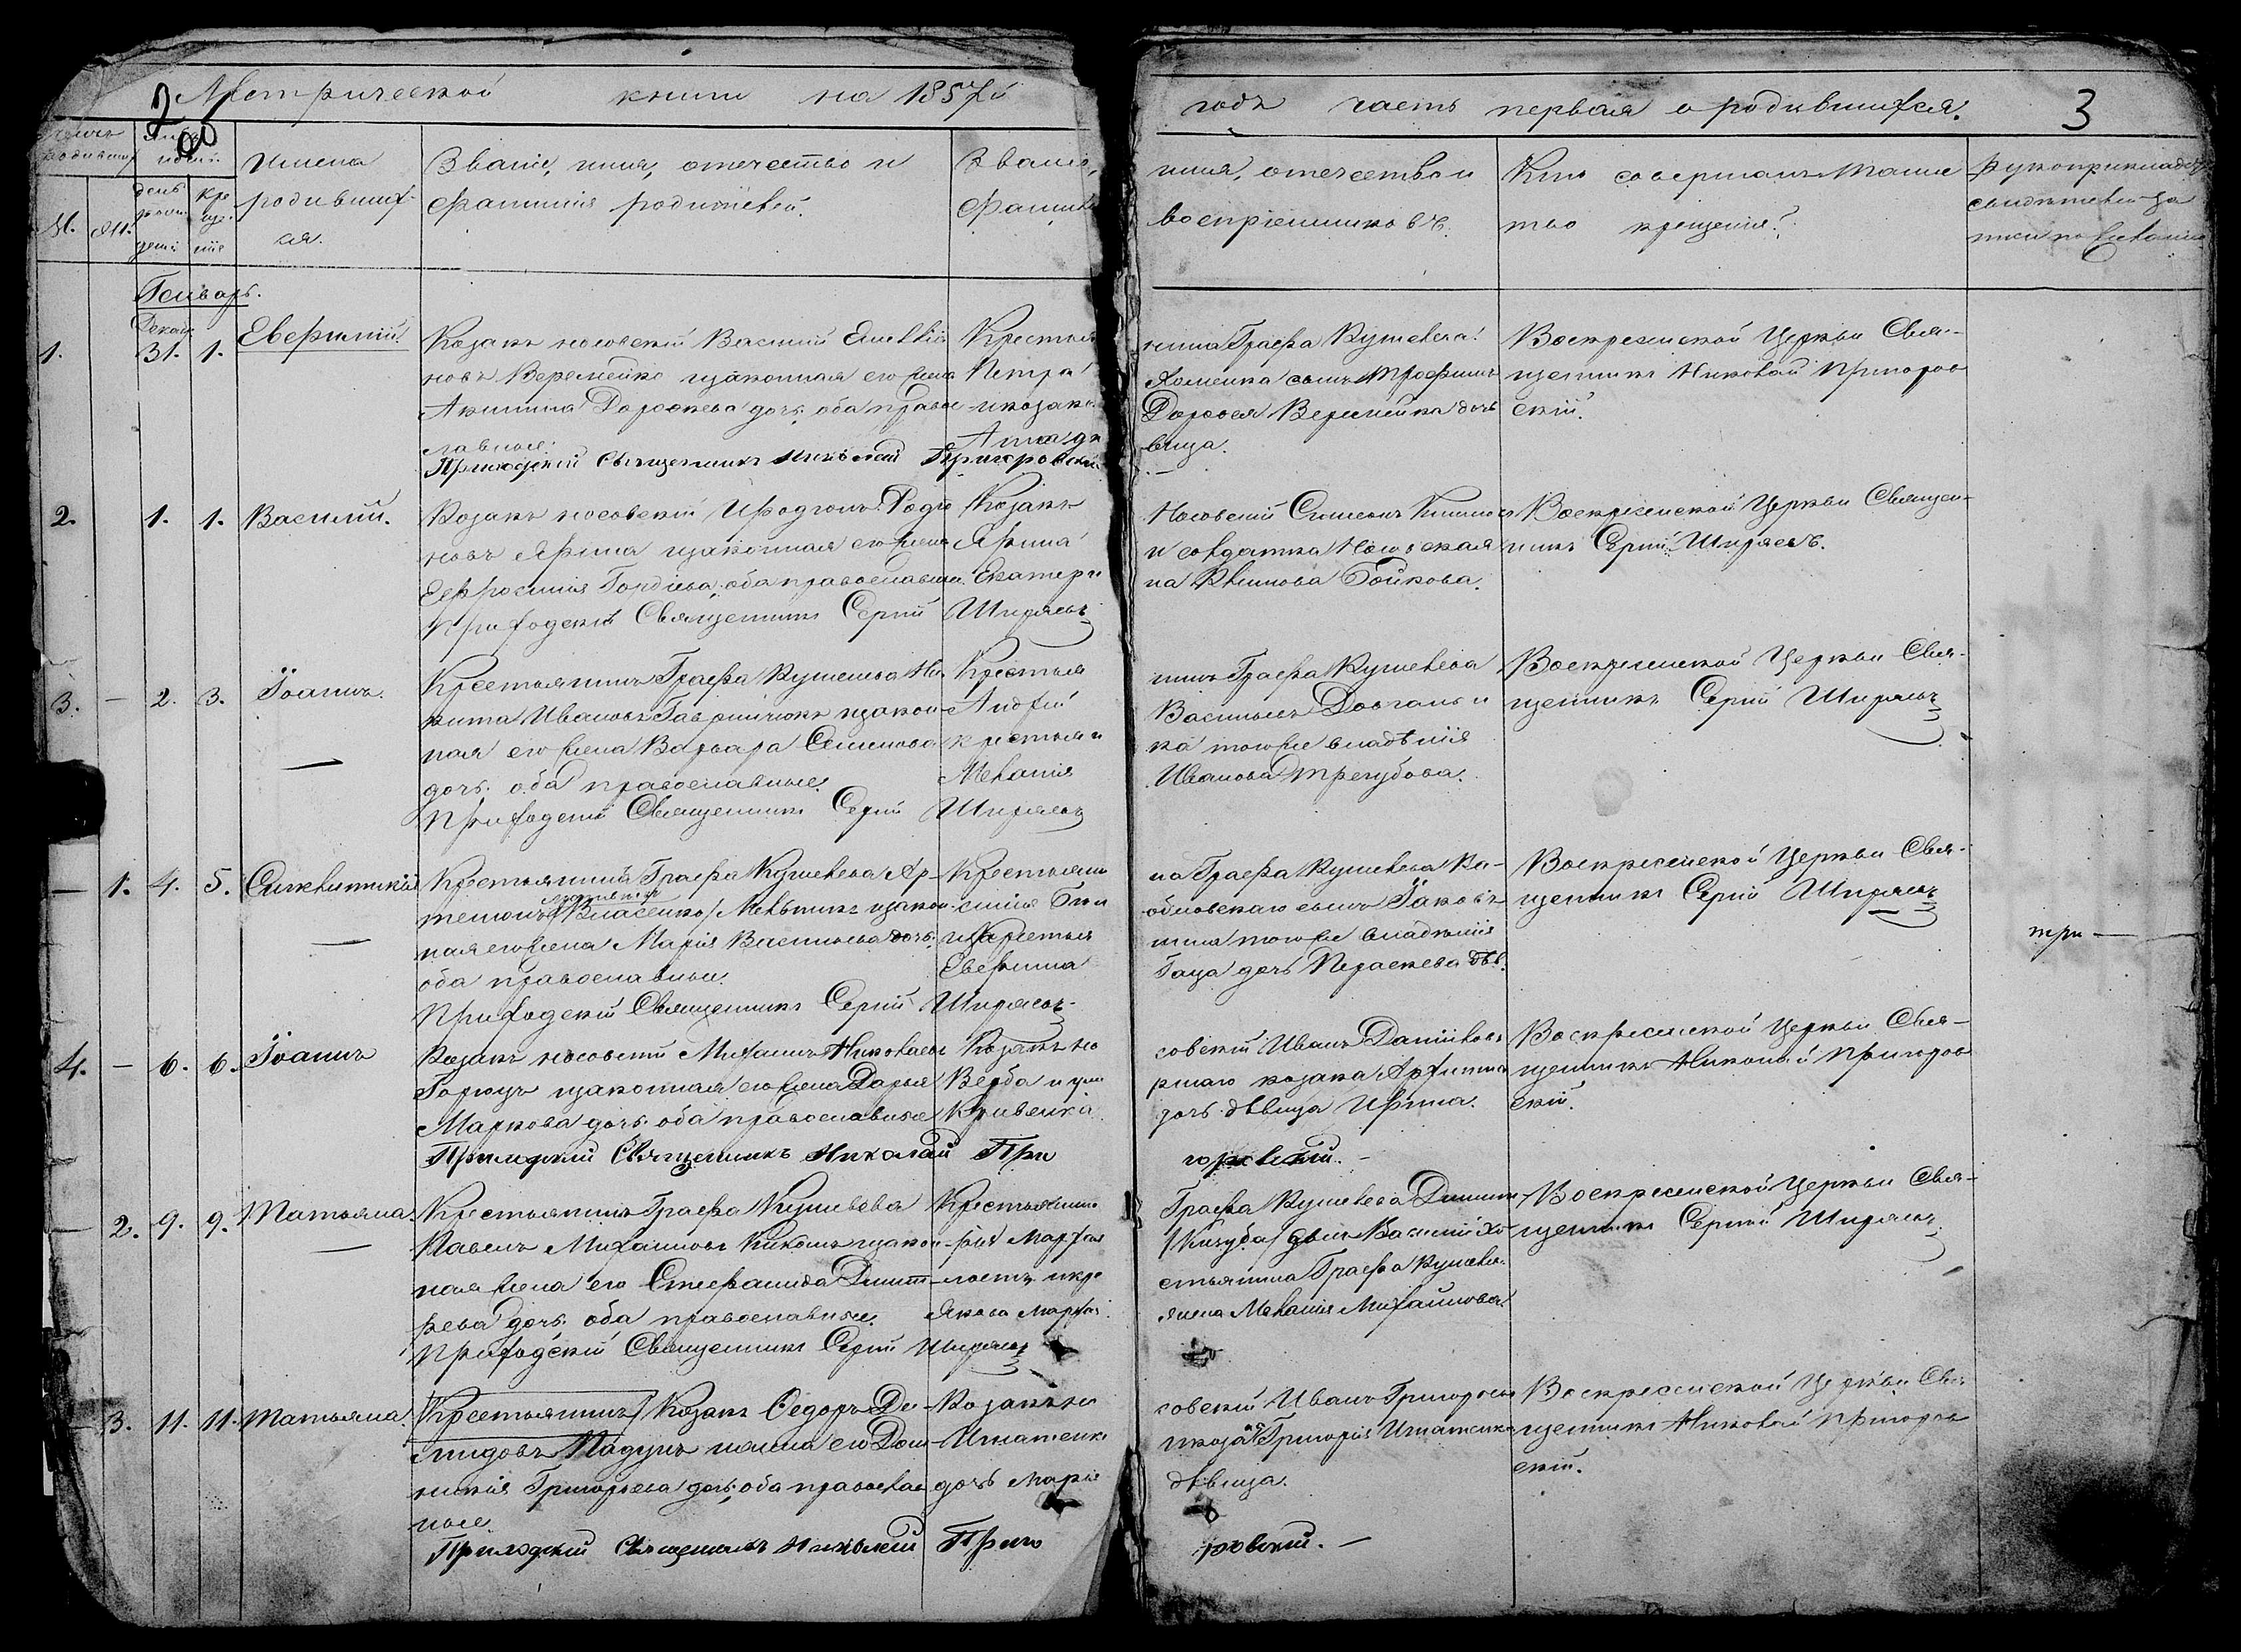 2
Метрической книги на 1857й
годъ часть первая о родившихся.
3
Имена
родивших-
ся.
Званіе, имя, отечество и
фамилія родителей.
Званіе,
фамилі
имя, отечество и
воспріемниковъ.
Кто совершалъ таин
тво крещенія?
рукоприкладст
свидѣтелей за
писи по желанію
М. Ж.
день
рож
денія
кре
ще-
нія
Генварь.
Декаб
1. 31. 1. Евфимій.
Козакъ носовскій Василій Емеліа
новъ Веремейко изаконная его жена
Акилина Дорофеева дочь оба право
славные.
Приходскій Священникъ Николай Пригоровскій
Крестьян
Петра
и козака
Анна дѣ
нина Графа Кушелева
Хоменка сынъ Трофимъ
Дорофея Веремейка дочь
вица.
Воскресенской Церкви Свя-
щенникъ Николай Пригоров
скій.
2. 1. 1. Василій.
Козакъ носовскій Иродіонъ Родіо
новъ Ярина изаконная его жена
Евфросинія Гордіева оба православные.
Приходскій Священникъ Сергій Ширяевъ
Козакъ
Ярина
Екатери
Носовскій Симеонъ
и солдатка Носовская
на Климова Бойкова.
Воскресенской Церкви Священ-
никъ Сергій Ширяевъ.
3. — 2. 3. Іоаннъ.
Крестьянинъ Графа Кушелева Ни
кита Ивановъ Гаврилюкъ изакон-
ная его жена Варвара Семенова
дочь оба православные.
Приходскій Священникъ Сергій Ширяевъ
Крестьян
Андрей
крестьян
Меланія
нинъ Графа Кушелева
Васильевъ Довгань и
ка того же владѣнія
Иванова Трегубова.
Воскресенской Церкви Свя-
щенникъ Сергій Ширяевъ
— 1. 4. 5. Синклитикія
Крестьянинъ Графа Кушелева Ар-
темонъ /Власенко/ Мельникъ изакон
ная его жена Марія Васильева дочь
оба православные.
Приходскій Священникъ Сергій Ширяевъ
Крестьяни
икрестьян
Евфимія
на Графа Кушелева Ка-
сынъ Іаковъ
нина того же владѣнія
Гаца дочь Параскева дѣв.
Воскресенской Церкви Свя-
щенникъ Сергій Ширяевъ
три —
4. — 6. 6. Іоаннъ
Козакъ носовскій Михаилъ Николаевъ
изаконная его жена Дарья
Маркова дочь оба православные
Приходскій Священникъ Николай При
Козакъ но
Верба и ум
Кривенка
совскій Иванъ Даніиловъ
ршаго козака
дочь дѣвица Ирина.
горовскій. —
Воскресенской Церкви Свя-
щенникъ Николай Пригоров
скій.
— 2. 9. 9. Татьяна.
Крестьянинъ Графа Кушелева
Павелъ Михаиловъ изакон
ная жена его Стефанида Димит-
рева дочь оба православные.
Приходскій Священникъ Сергій Ширяевъ
Крестьянинъ
икре
Якова
Графа Кушелева
/Кичуба/ сынъ Василій
стьянина Графа Кушелев
жена Меланія Михайлова
Воскресенской Церкви Свя-
щенникъ Сергій Ширяевъ
— 3. 11. 11. Татьяна.
/Крестьянинъ/ Козакъ Ѳедоръ
Падунъ ижена его Дом-
никія Григорьева дочь оба православ
ные.
Приходскій Священникъ Николай Приго
Козакъ но
Игнатенко
дочь Марія
совскій Иванъ Григорьевъ
икозака Григорія Игнатенка
дѣвица.
ровскій. —
Воскресенской Церкви Свя-
щенникъ Николай Пригоров
скій.